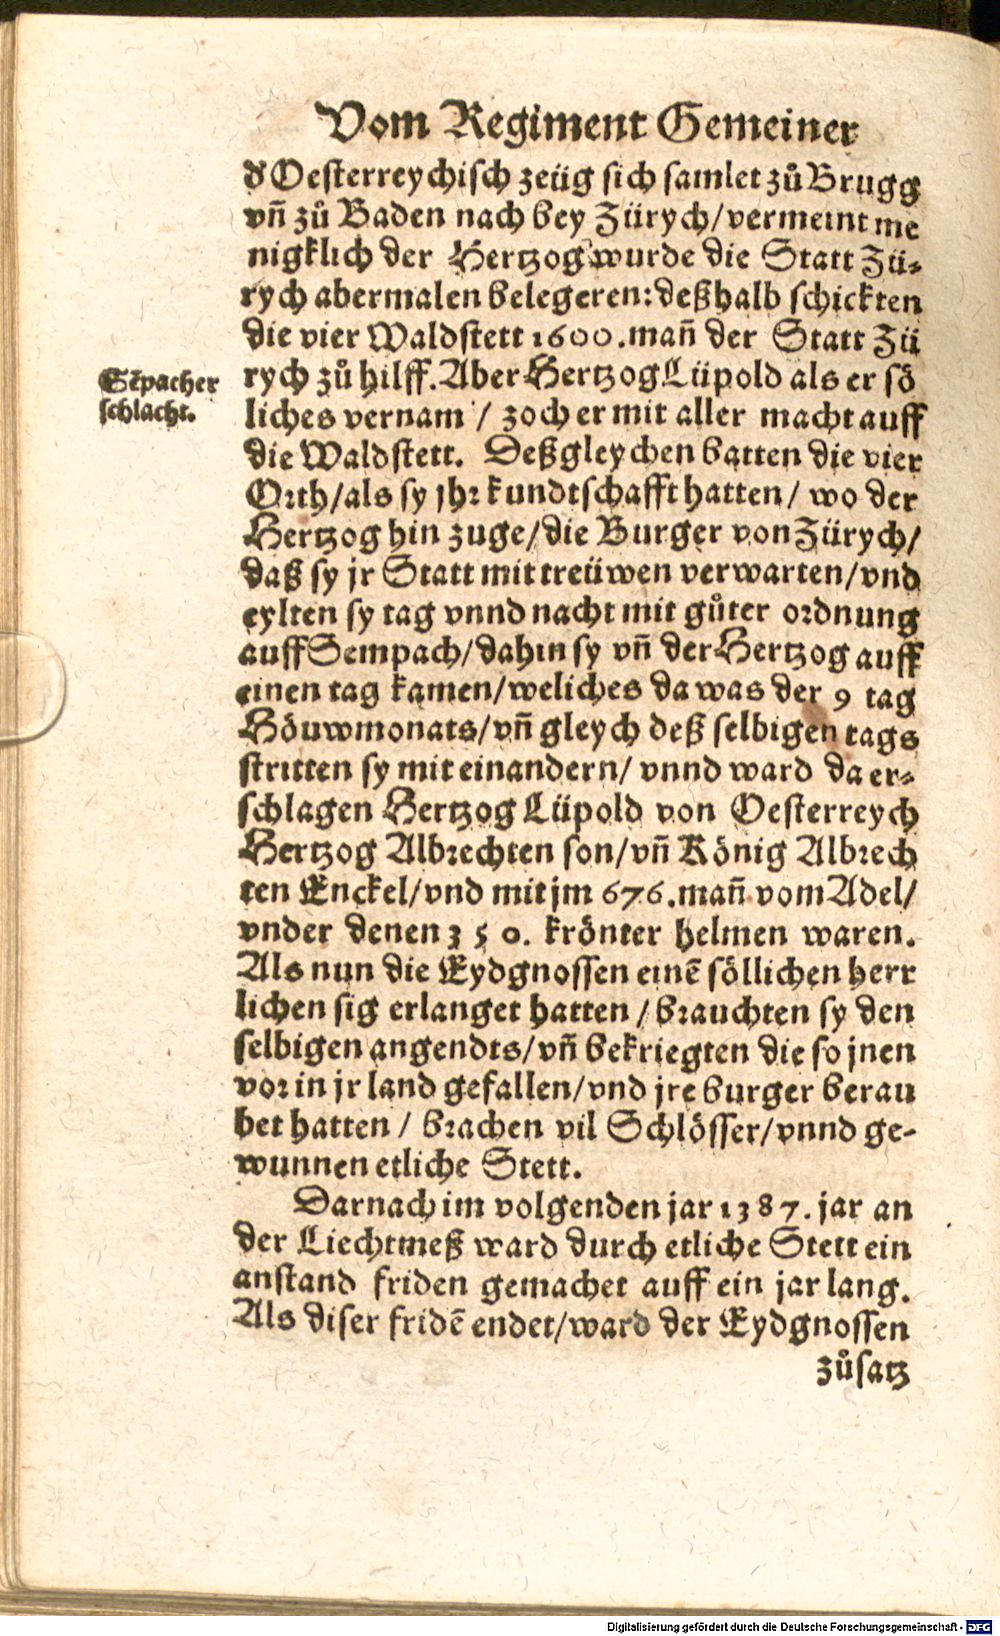 Vom Regiment Gemeiner
d' Oesterreychisch zeüg sich samlet zů Brugg
vñ zů Baden nach bey Zürych/vermeint me
nigklich der Hertzog wurde die Statt Zü-
rych abermalen belegeren: deßhalb schickten
die vier Waldstett 1600. mañ der Statt Zü
Sēpacher
schlacht.
rych zů hilff. Aber Hertzog Lüpold als er sö
liches vernam / zoch er mit aller macht auff
die Waldstett. Deßgleychen batten die vier
Orth/als sy jhr kundtschafft hatten/ wo der
Hertzog hin zuge/die Burger von Zürych/
daß sy jr Statt mit treüwen verwarten/vnd
eylten sy tag vnnd nacht mit gůter ordnung
auff Sempach/dahin sy vñ der Hertzog auff
einen tag kamen/weliches da was der 9 tag
Höuwmonats/vñ gleych deß selbigen tags
stritten sy mit einandern/ vnnd ward da er-
schlagen Hertzog Lüpold von Oesterreych
Hertzog Albrechten son/vñ König Albrech
ten Enckel/vnd mit jm 676. mañ vom Adel/
vnder denen 350. krönter helmen waren.
Als nun die Eydgnossen einē söllichen herr
lichen sig erlanget hatten / brauchten sy den
selbigen angendts/vñ bekriegten die so jnen
vor in jr land gefallen/vnd jre burger berau
bet hatten / brachen vil Schlösser/vnnd ge-
wunnen etliche Stett.
Darnach im volgenden jar 1387. jar an
der Liechtmeß ward durch etliche Stett ein
anstand friden gemachet auff ein jar lang.
Als diser fridē endet/ward der Eydgnossen
zůsatz
Digitalisierung gefördert durch die Deutsche Forschungsgemeinschaft - DFG